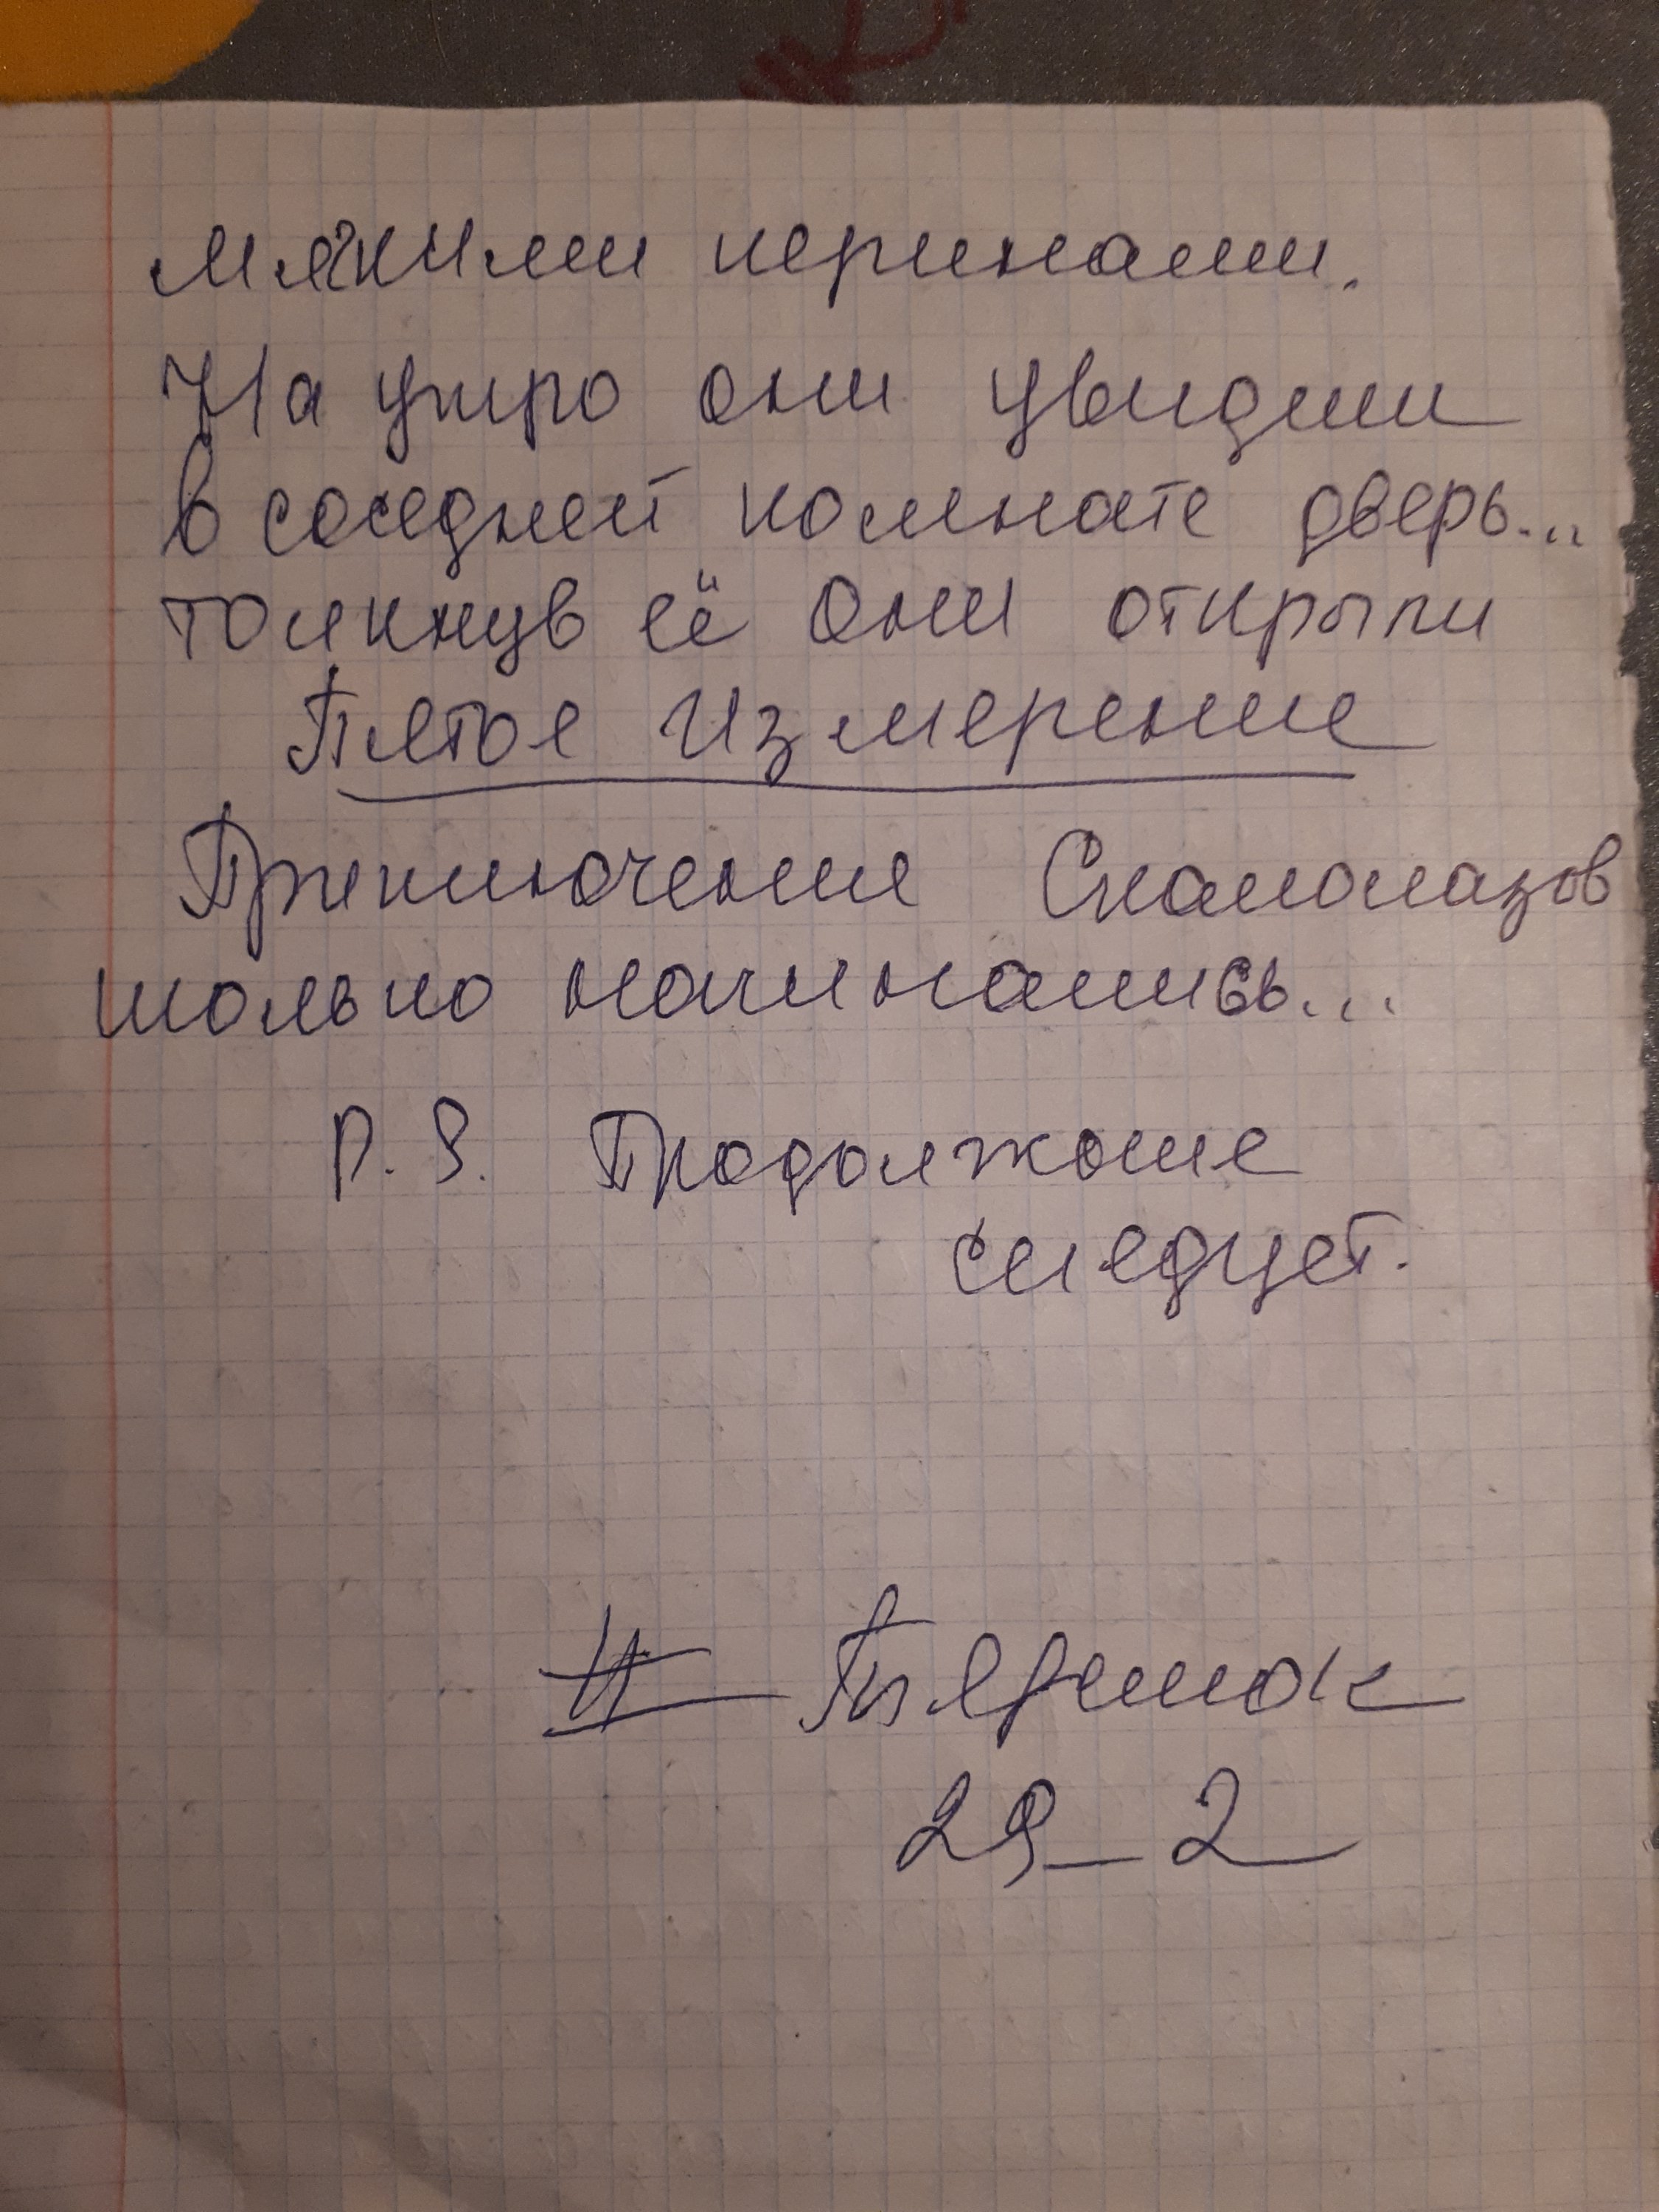 мягкими перинами.
На утро они увидели
в соседней комнате дверь...
толкнув её они открыли
Пятое Измерение
Приключение Скалолазов
только начинались...
P. S. Продолжение
следует.
29_2